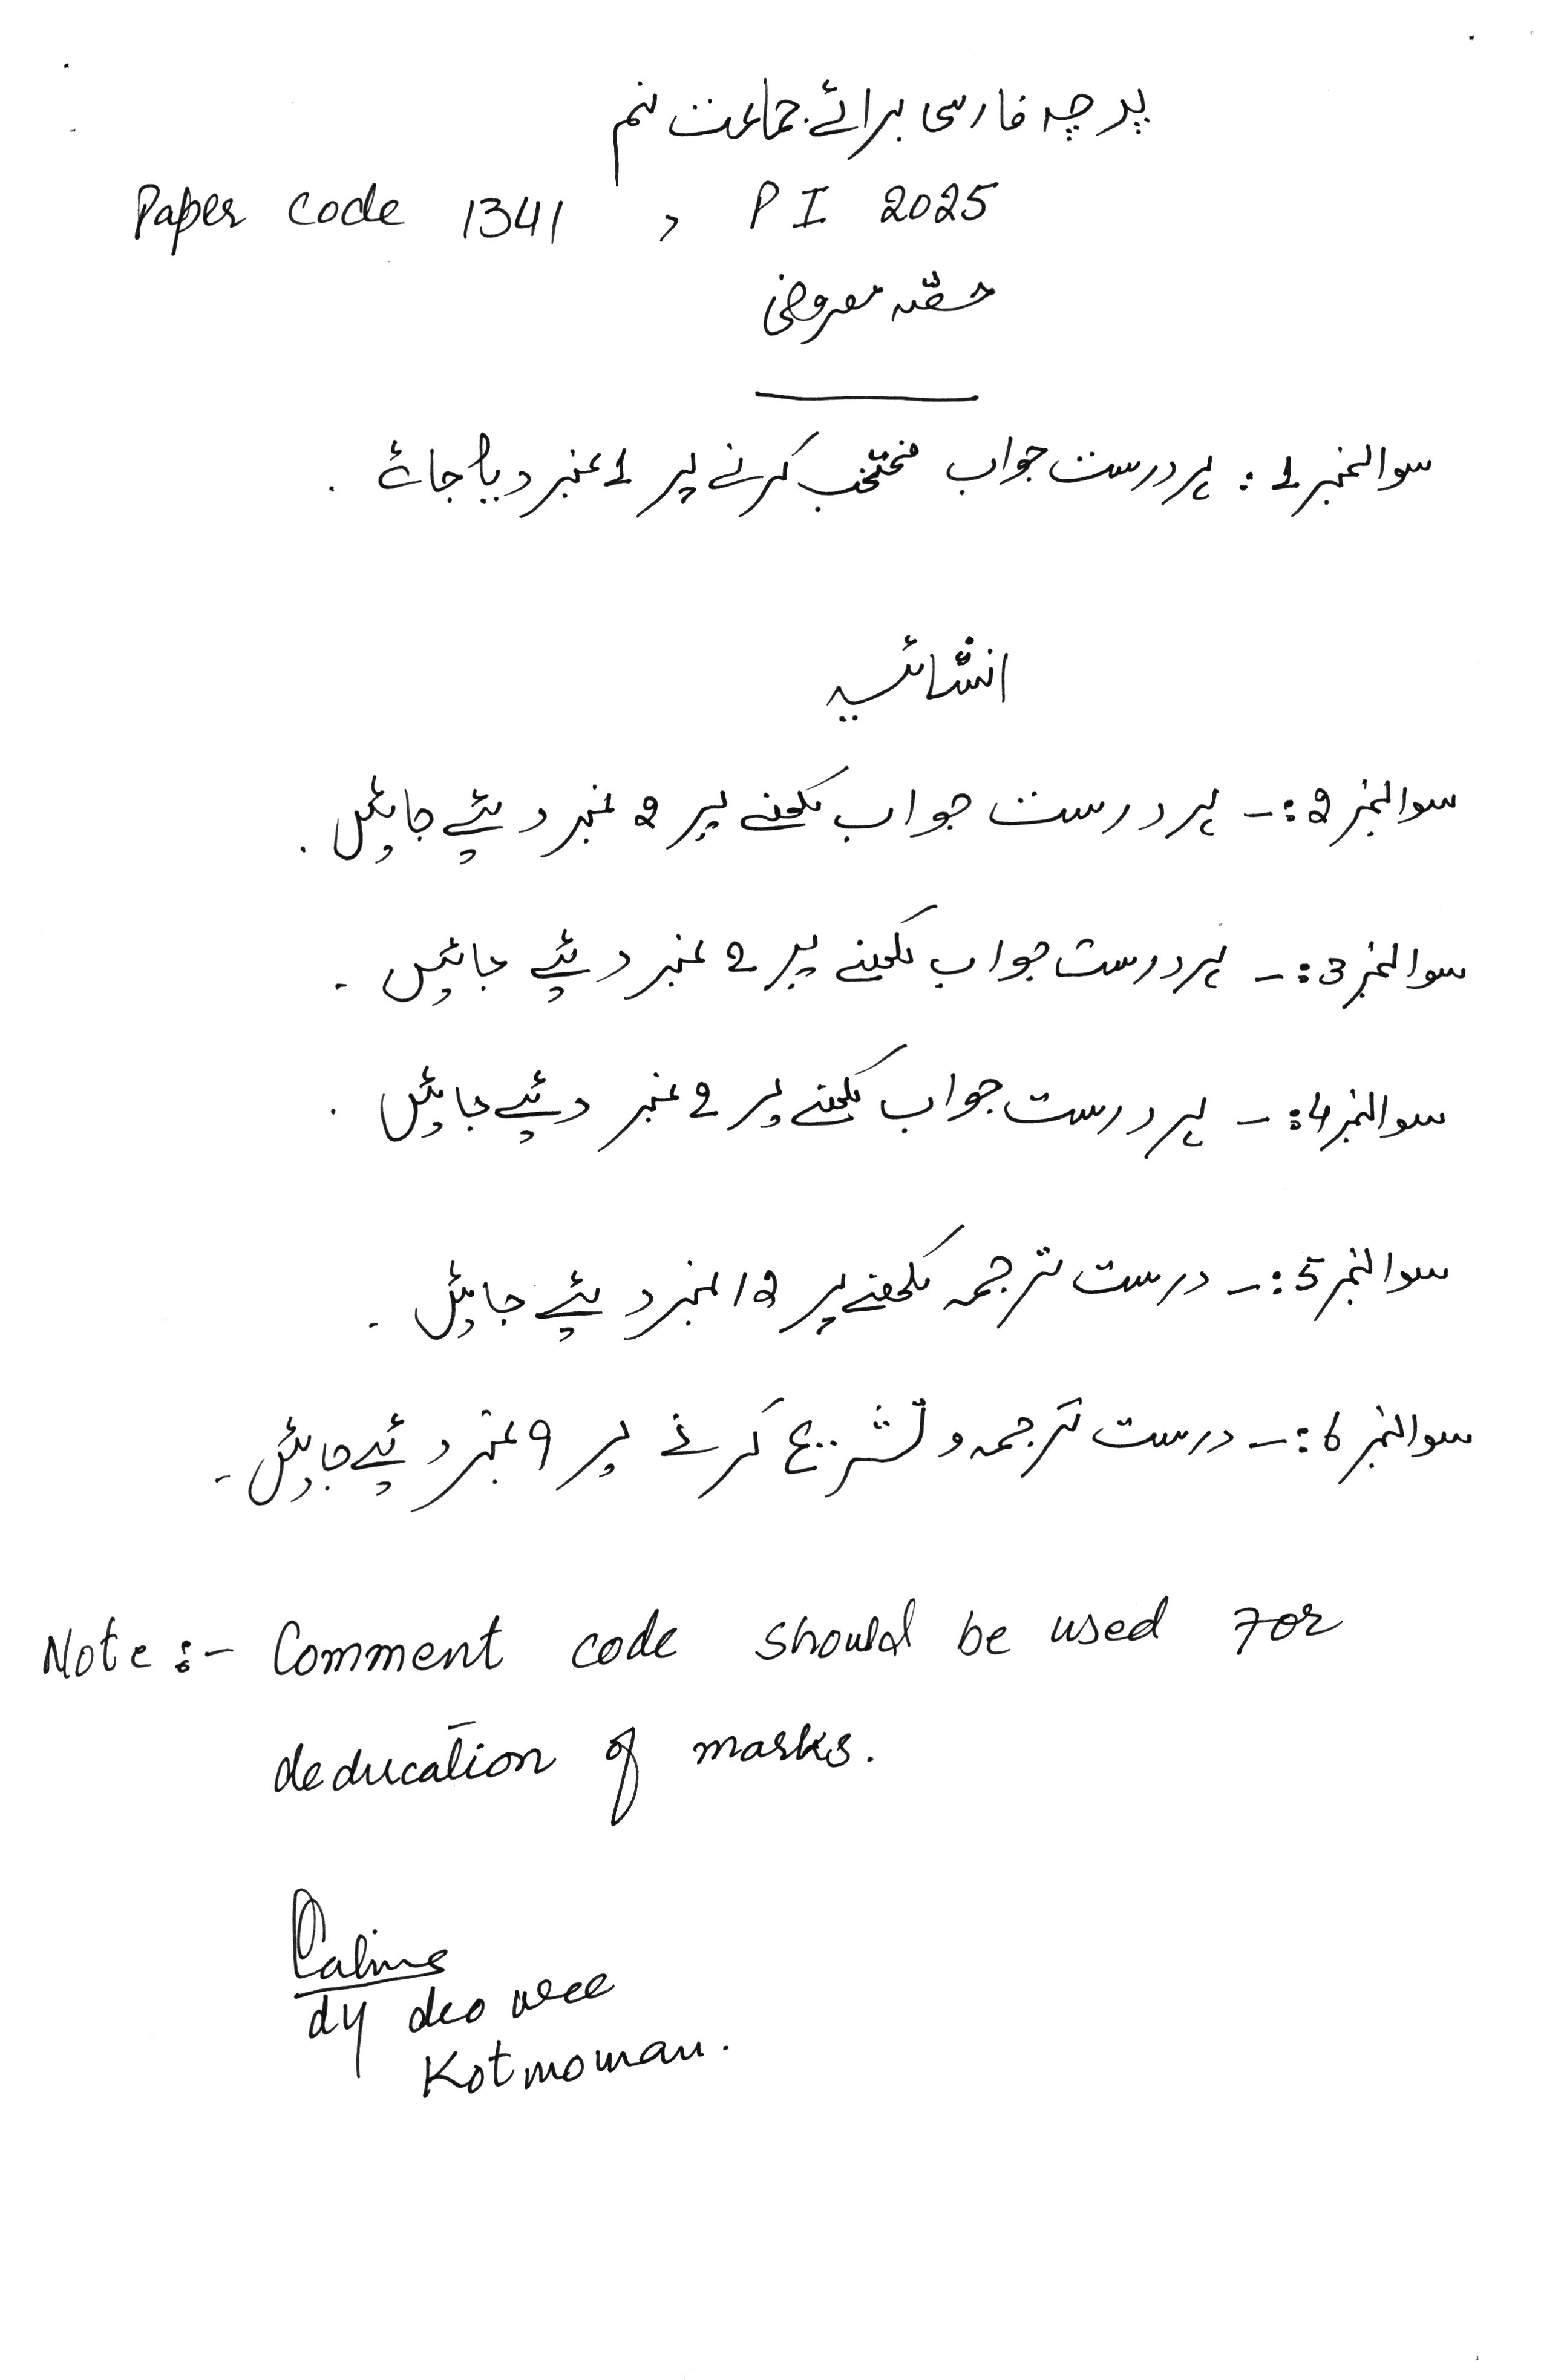 پرچہ فارسی برائے جماعت نہم
Paper code 1341 , P I 2025
حصّہ معروضی
سوالنمبر 1 : ہر درست جواب منتخب کرنے پر 1 نمبر دیا جائے .
انشائیہ
سوالنمبر 2 :- ہر درست جواب لکھنے پر 2 نمبر دیئے جائیں .
سوالنمبر 3 :- ہر درست جواب لکھنے پر 2 نمبر دیئے جائیں -
سوالنمبر 4 :- ہر درست جواب لکھنے پر 2 نمبر دیئے جائیں .
سوالنمبر 5 :- درست ترجمہ لکھنے پر 12 نمبر دیئے جائیں -
سوالنمبر 6 :- درست ترجمہ و تشریح کرنے پر 9 نمبر دیئے جائیں -
Note :- Comment code should be used For
deducation of marks.
dy deo wee
Kotmoman.